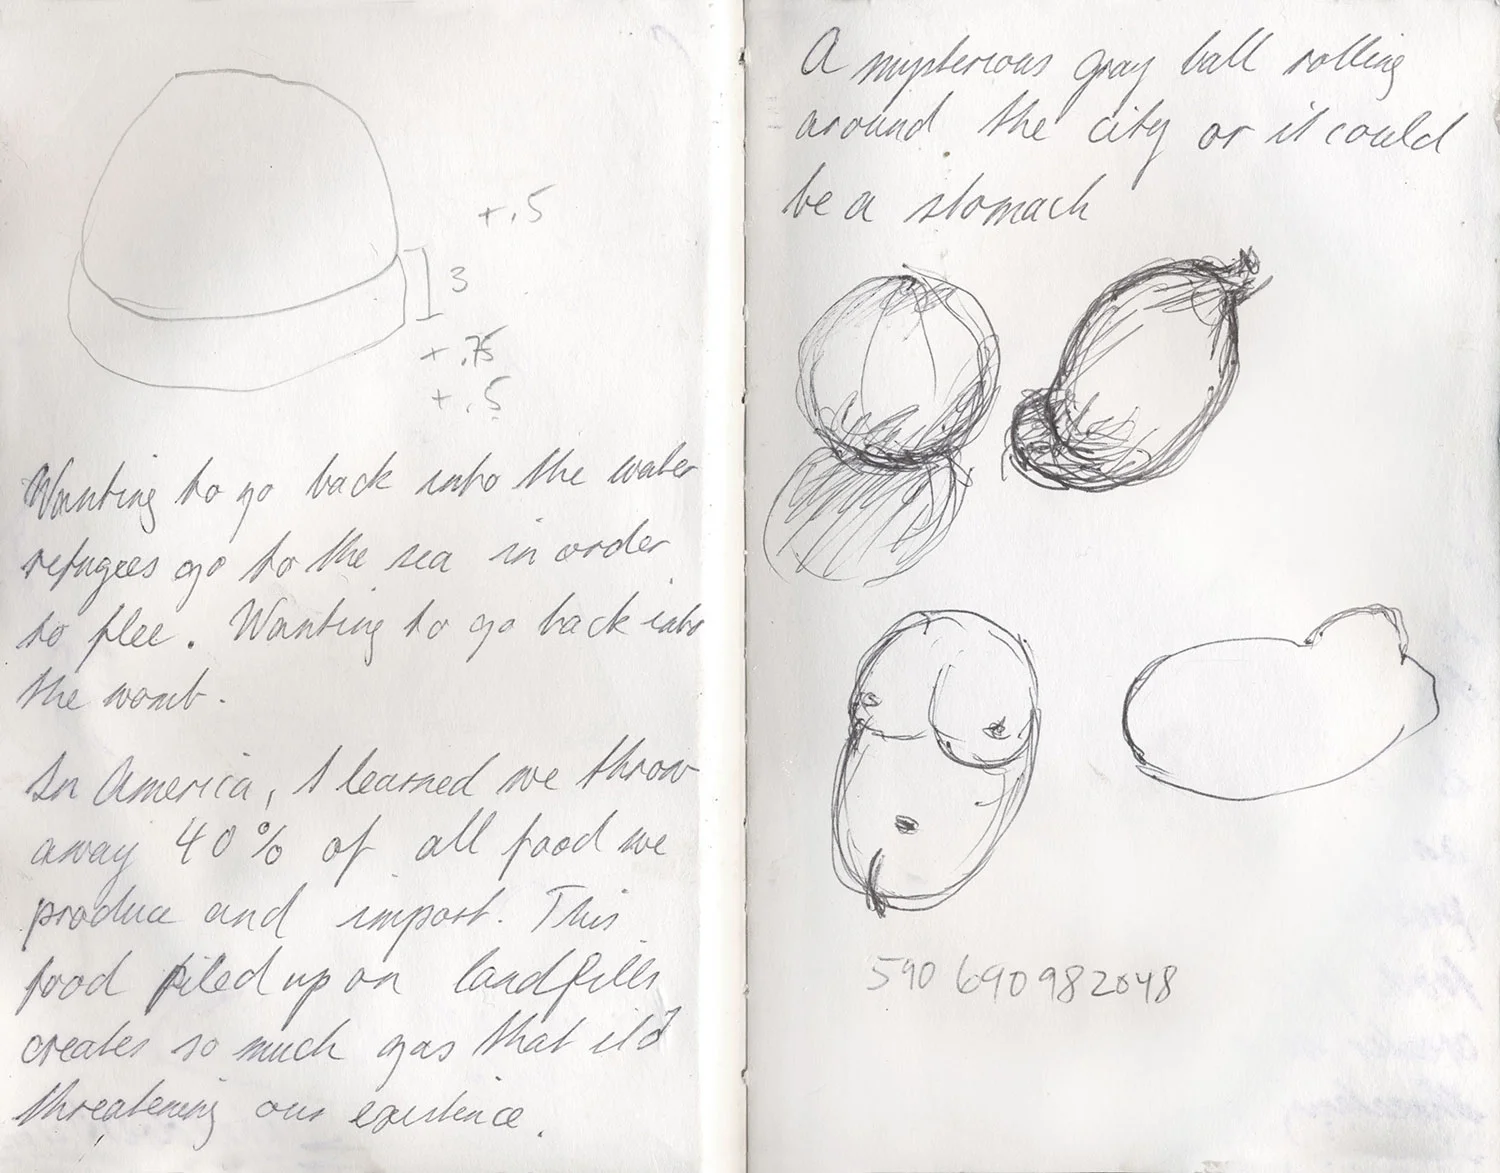 +.5
3
+.75
+.5
Wanting to go back into the water
refugees go to the sea in order
to flee. Wanting to go back into
the womb.
In America, I learned we throw
away 40% of all food we
produce and import. This
food piled up on landfills
creates so much gas that it's
threatening our existence.
A mysterious gray ball rolling
around the city or it could
be a stomach
590 690982048